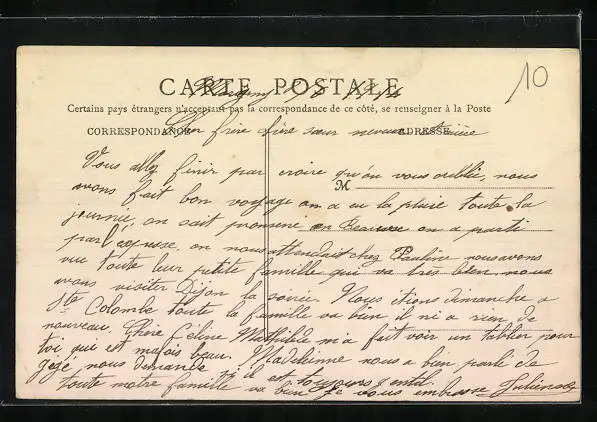 10
CARTE POSTALE
Certains pays étrangers n'acceptant pas la correspondance de ce côté, se renseigner à la Poste
CORRESPONDANCE
ADRESSE
M
frère sœur neveux
Vous allez finir par croire qu'on vous oublie, nous
avons fait bon voyage on a eu la pluie toute la
journée, on sait promené en on a parti
par l'express on nous attendait chez Pauline nous avons
vu toute leur petite famille qui va très bien, nous
avons visiter Dijon la soirée. Nous étions dimanche a
Ste Colombe toute la famille va bien il ni a rien de
nouveau. Chère Céline Mathilde m'a fait voir un tablier pour
toi qui est mais beau. Madeleine nous a bien parlé de
gégé, nous demande si il est toujours gentil.
toute notre famille va bien Je vous embrasse